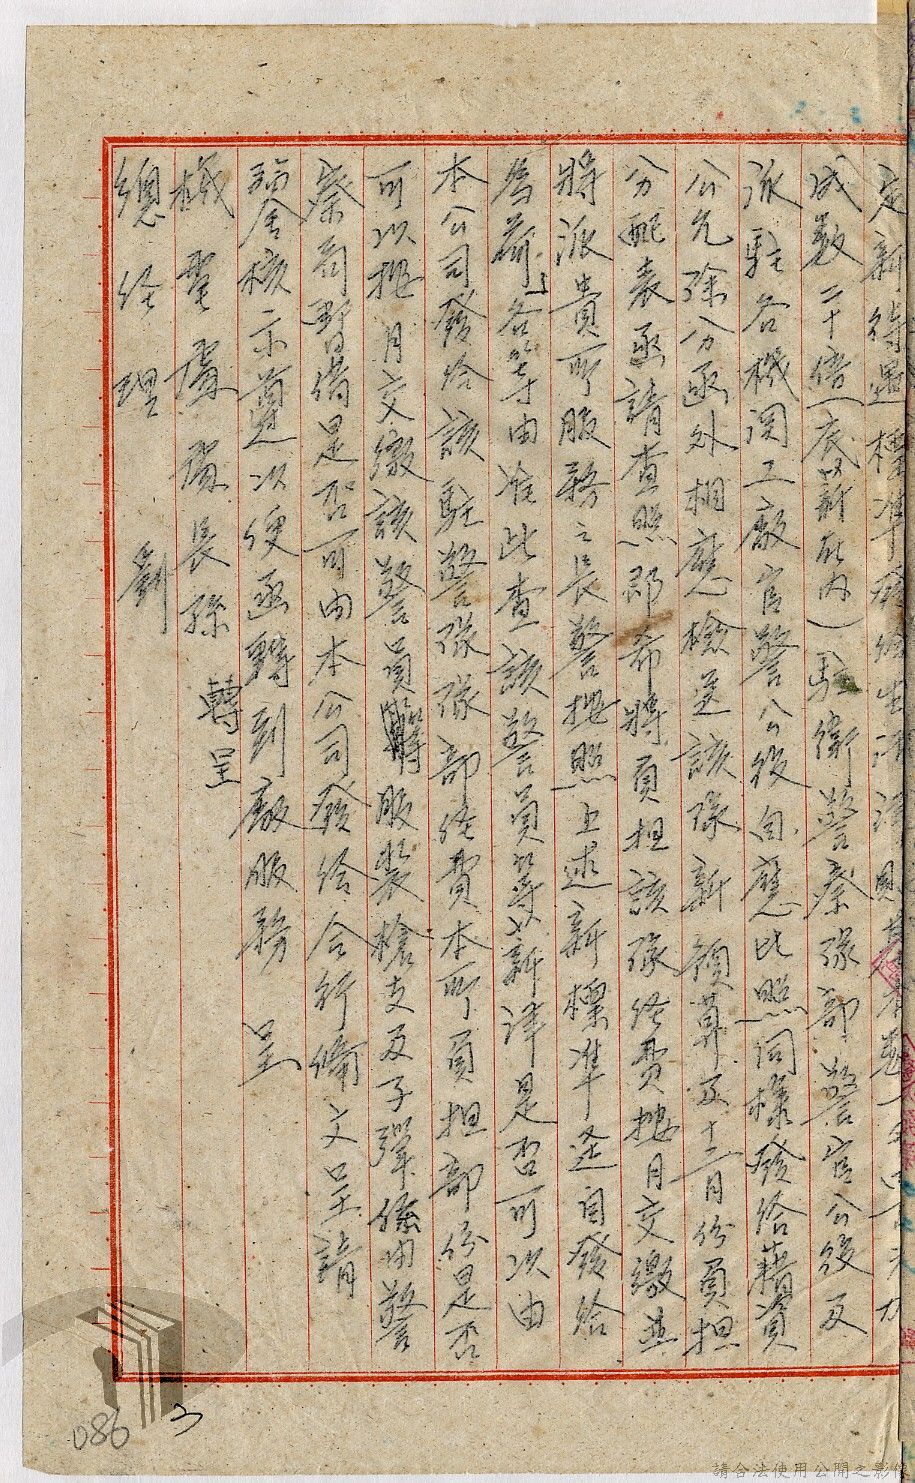 定新待遇標準發給生活
成數二十倍(底薪在內)駐衛警察隊部警官公役及
派駐各機関工廠官警公役自應比照同樣發給藉資
公允除分函外相應檢送該隊新預算及十二月份負担
分配表函請查照即希將負担該隊経費按月交繳並
將派貴所服務之長警按照上述新標準逕自發給
為荷」各等由准此查該警員等薪津是否可以由
本公司發給該駐警隊隊部経費本所負担部份是否
可以按月交繳該警員服裝槍支及子彈係由警
察局暫借是否可由本公司發給合行備文呈請
鑒核示遵以便函轉到廠服務 呈
機電處處長孫 轉呈
總経理 劉
086
請合法使用公開之影像